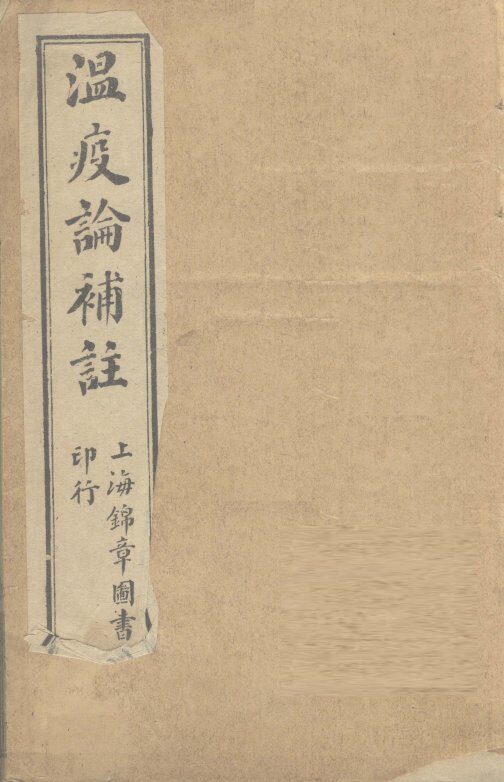 温疫論補註
上海錦章圖書
印行